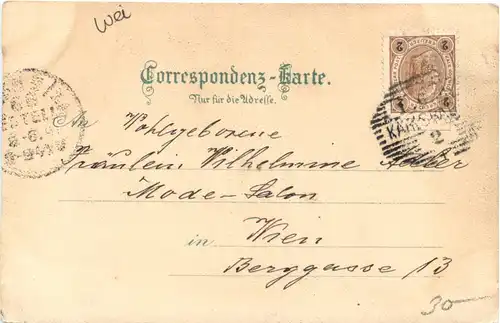 Wei
Correspondenz-Karte.
Nur für die Adresse.
An Wohlgeborene
Fräulein Wilhelmine Adler
Mode-Salon
in Wien
Berggasse 13
2 2
2
30